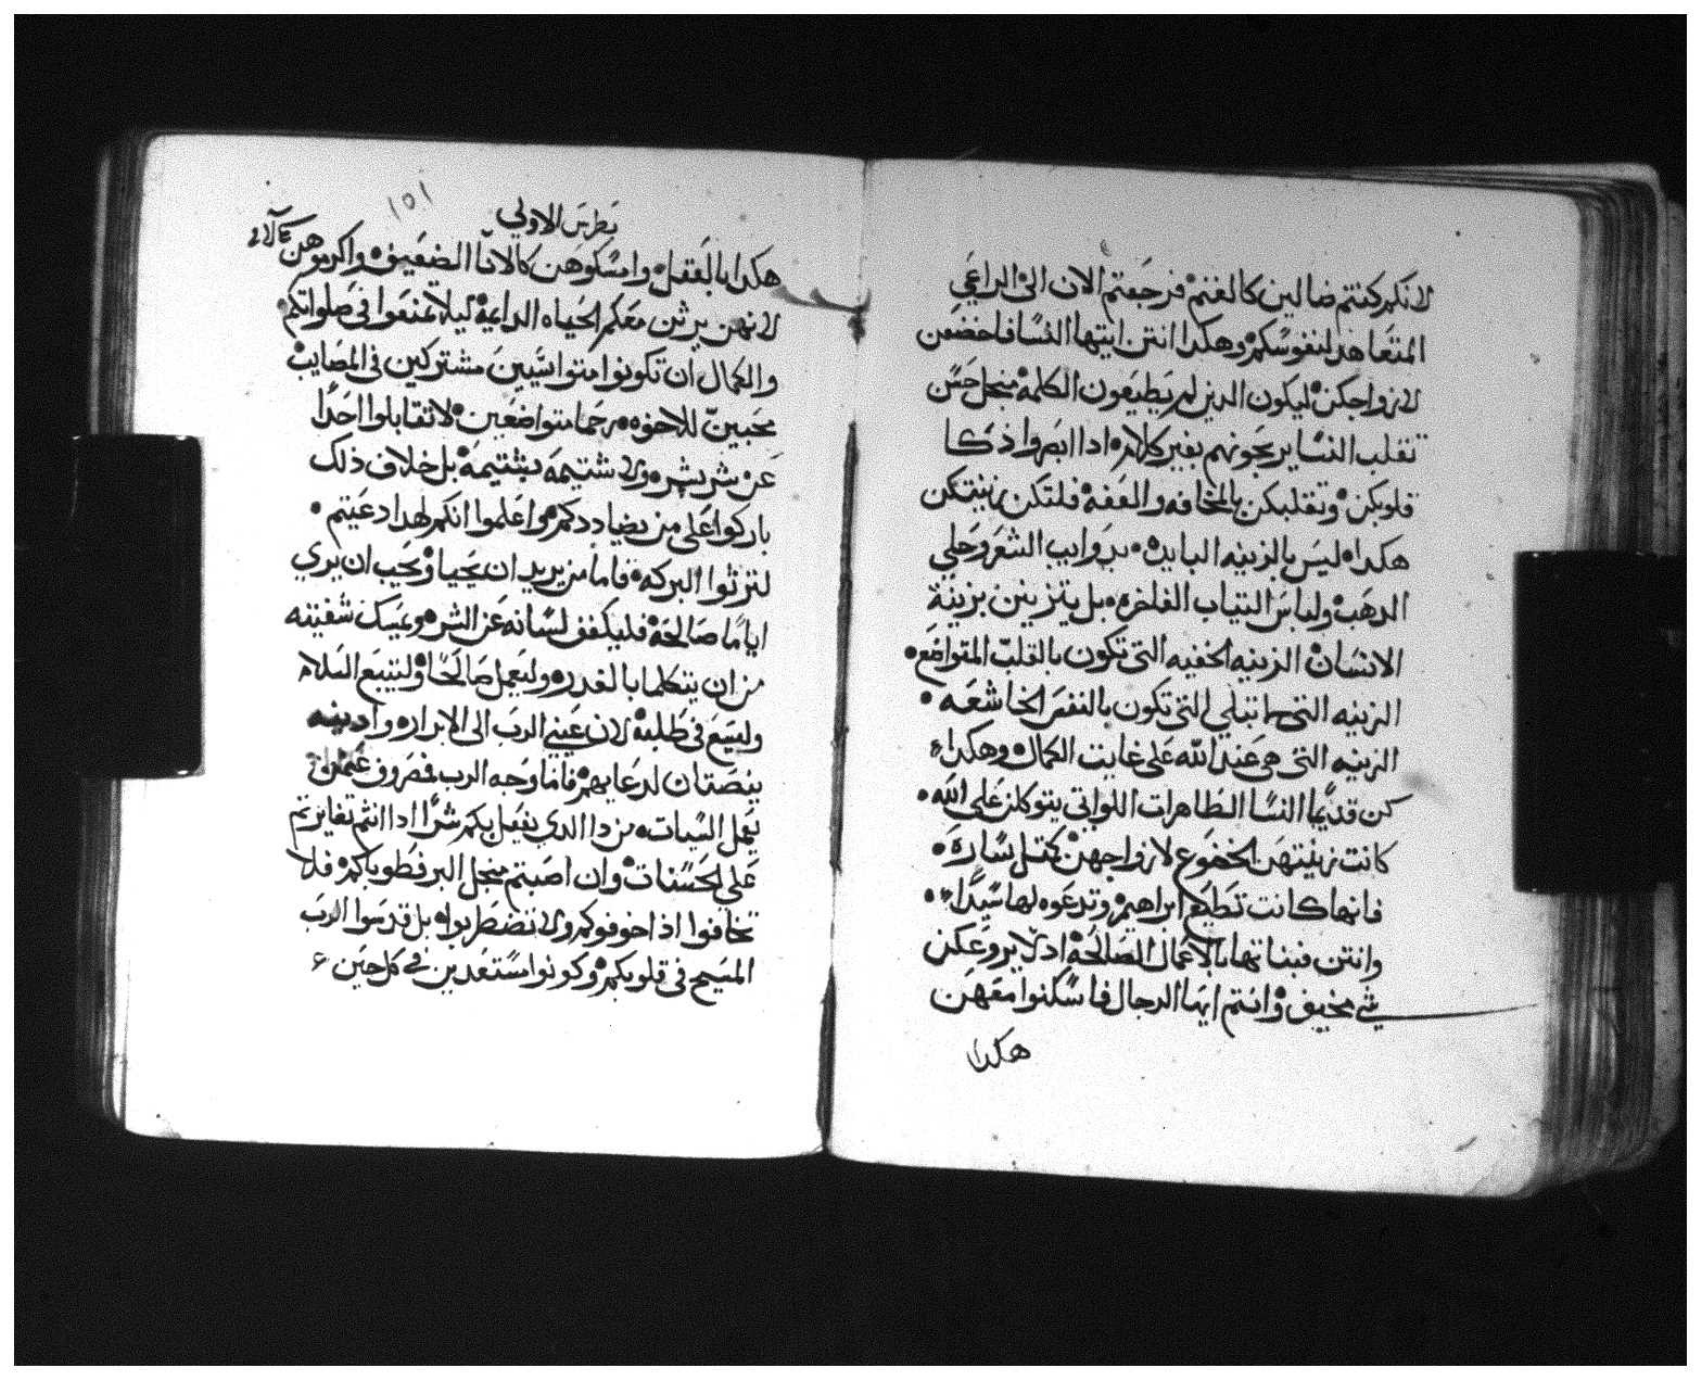 لانكم كنتم ضالين كالغنم فرجعتم الان الى الراعي
المتعاهد لنفوسكم وهكدا انتن ايتها النسا فاخضعن
لازواجكن ليكون الدين لم يطيعون الكلمة منجل حسن
تقلب النسا يربحونهم بغير كلام ادا ابصروا ذكا
قلوبكن وتقلبكن بالمخافه والعفة فلتكن زينتكن
هكدا ليس بالزينه البايده بدوايب الشعر وحلي
الدهب ولباس التياب الفاخرة بل يتزينن بزينة
الانسان الزينه الخفيه التي تكون بالقلب المتواضع
الزينه التي ما تبلي التي تكون بالنفس الخاشعه
الزينه التي هي عند الله على غايت الكمال وهكدا
كن قديما النسا الطاهرات اللواتي يتوكلن على الله
كانت زينتهن الخضوع لازواجهن كمتل سارة
فانها كانت تطيع ابراهيم وتدعوه لها سيدا
وانتن فبناتها بالاعمال الصالحة اد لا يروعكن
شي مخيف وانتم ايها الرجال فاسكنوا معهن
هكدا
بطرس الاولي
١٥١
هكدا بالعقل وامسكوهن كالانا الضعيف واكرموهن
لانهن يرثن معكم الحياه الدايمة ليلا تمنعوا في صلواتكم
والكمال ان تكونوا متواسيين مشتركين في المصايب
محبين للاخوه رحما متواضعين لا تقابلوا احدا
عن شر بشر ولا شتيمه بشتيمة بل خلاف ذلك
باركوا على من يضاددكم واعلموا انكم لهدا دعيتم
لترثوا البركه فاما من يريد ان يحيا ويحب ان يري
اياما صالحة فليكفف لسانه عن الشر ويمسك شفتيه
من ان يتكلما بالغدر وليعمل صالحا وليتبع السلام
وليسع في طلبة لان عيني الرب الى الابرار وادنيه
ينصتان لدعايهم فاما وجه الرب فمصروف عمن
يعمل السيات من دا الدي يفعل بكم شرا ادا انتم تغايرتم
علي الحسنات وان اصبتم منجل البر فطوباكم فلا
تخافوا اذا خوفوكم ولا تضطربوا بل قدسوا الرب
المسيح في قلوبكم وكونوا مستعدين في كل حين